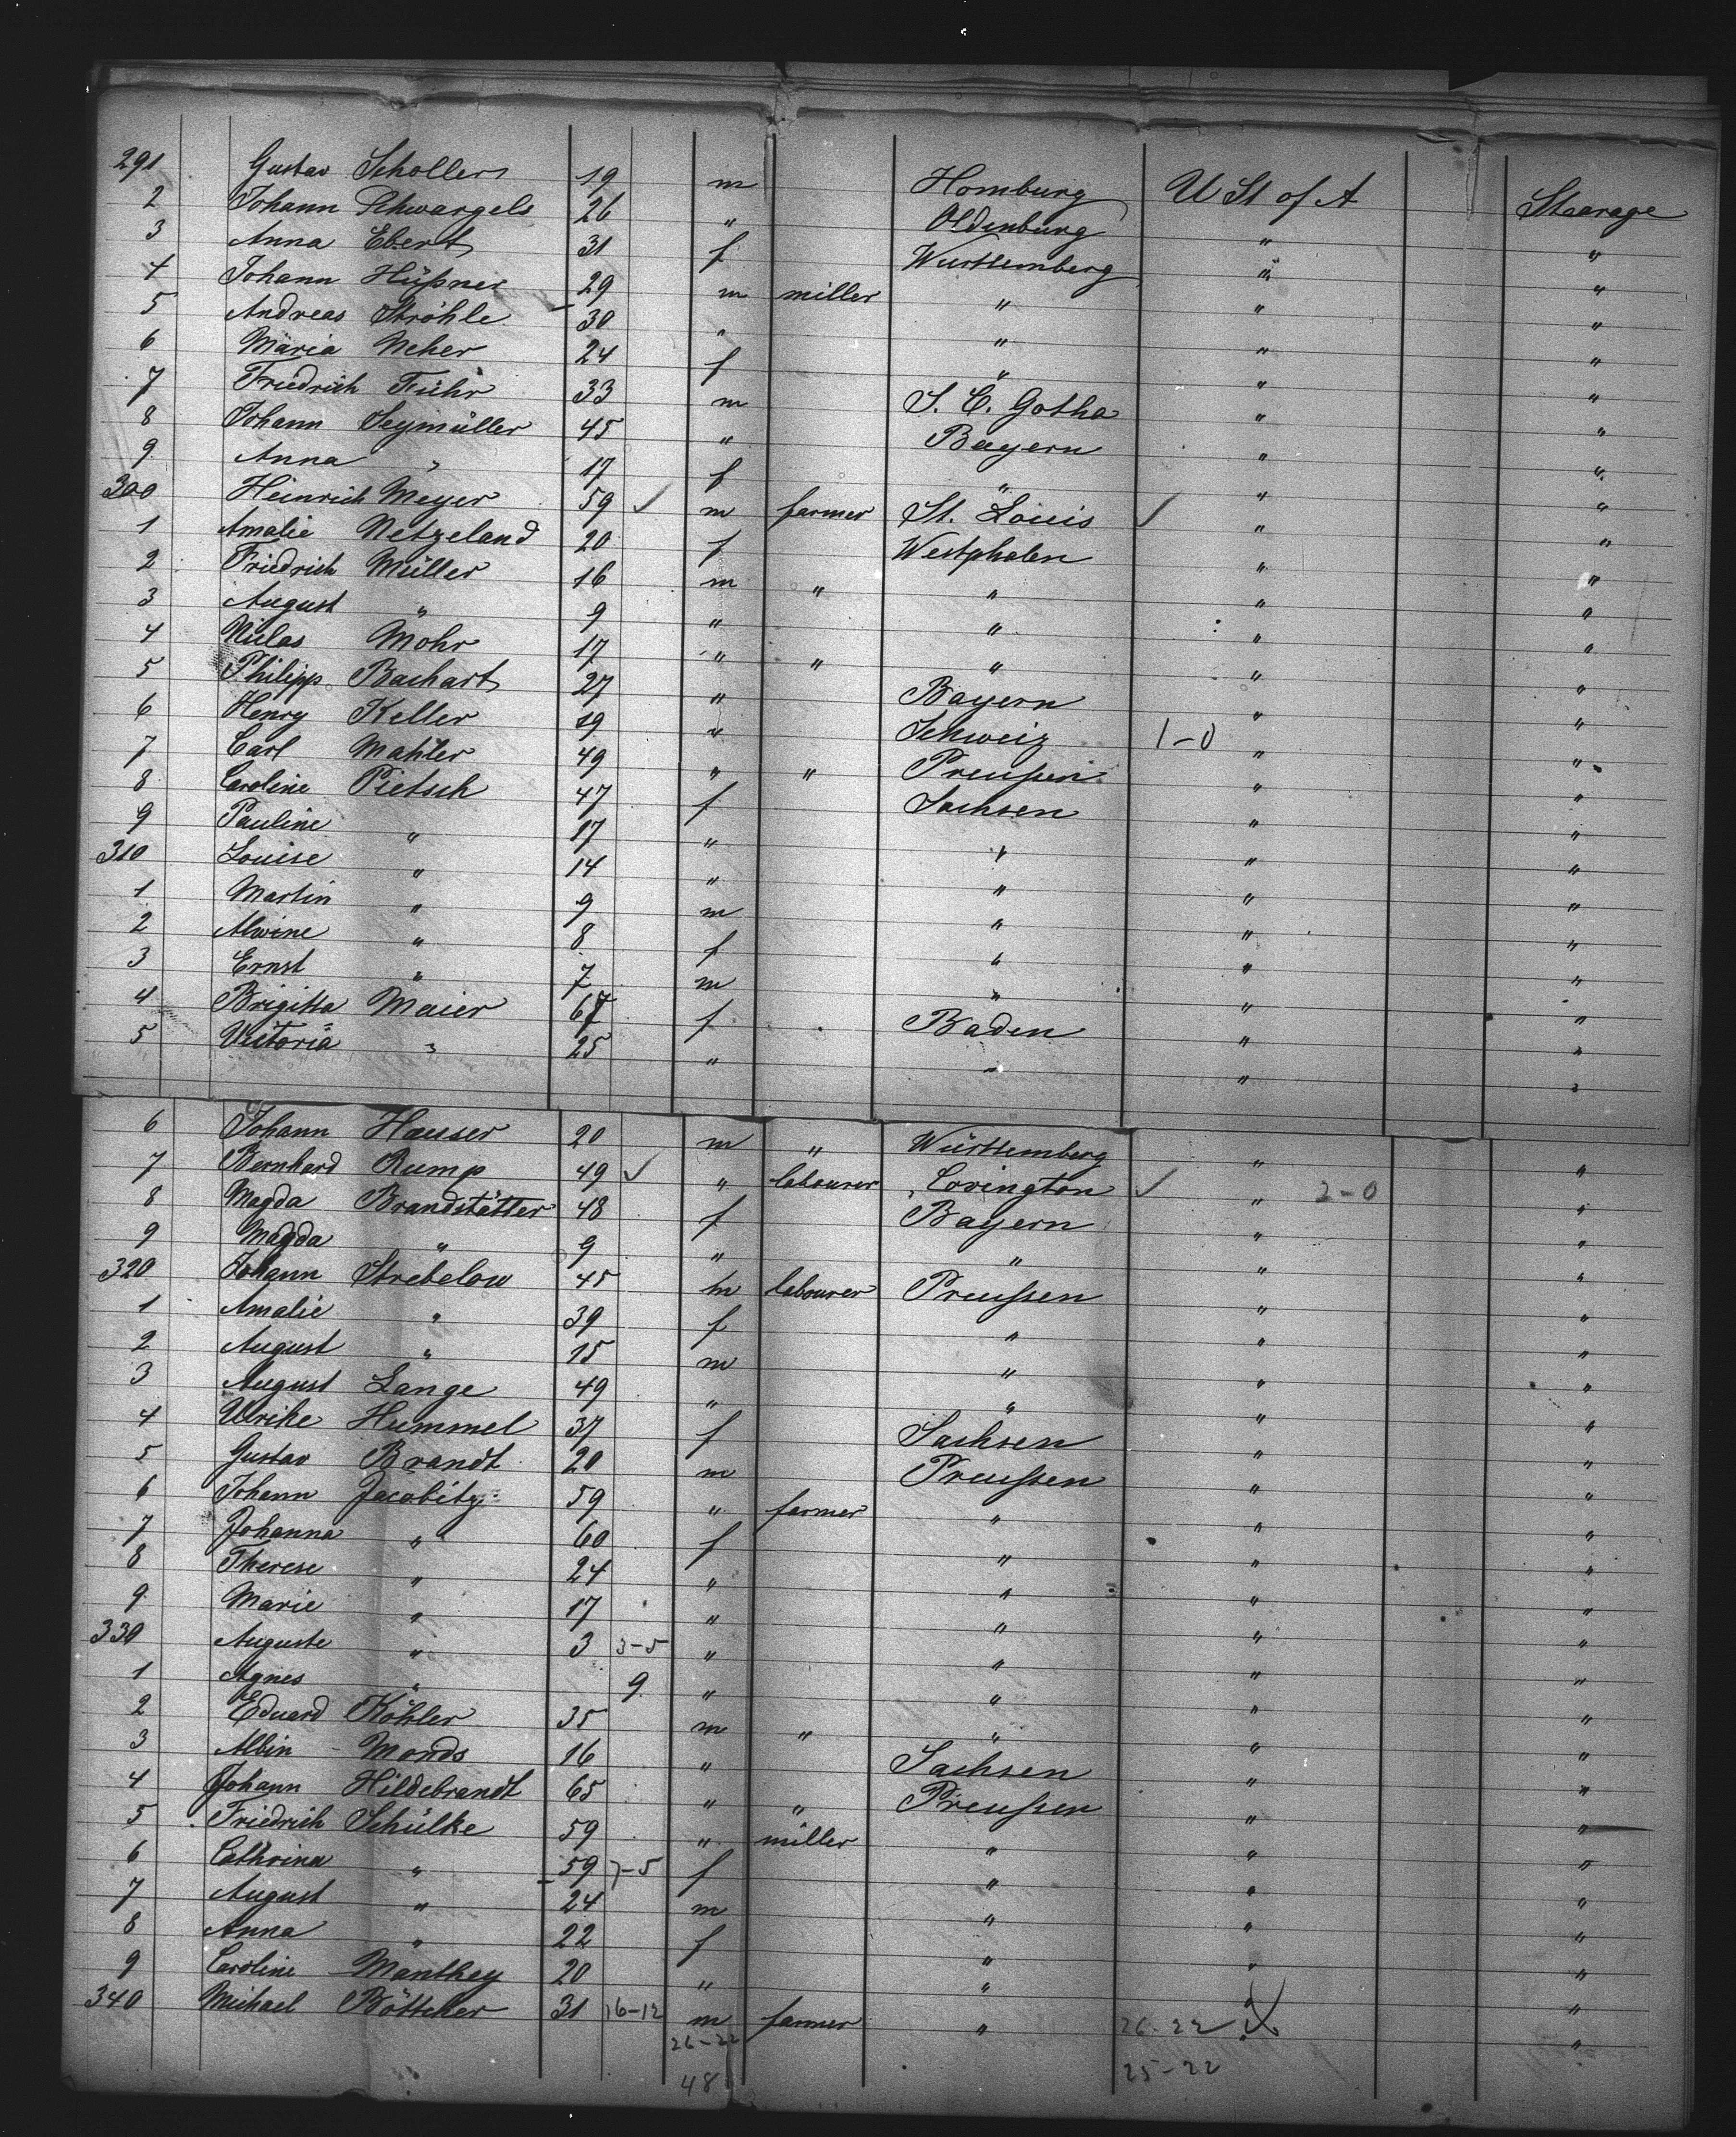 291 Gustav Schollers 19 m Homburg U St of A Stearage
2 Johann Schwargels 26 " Oldenburg " "
3 Anna Ebert 31 f Wurttemberg " "
4 Johann Hüßner 29 m miller " " "
5 Andreas Ströhle 30 " " " "
6 Maria Neher 24 f " " "
7 Friedrich Führ 33 m S. C. Gotha " "
8 Johann Seymüller 45 " Bayern " "
9 Anna " 17 f " " "
300 Heinrich Meyer 59 ✓ m farmer St. Louis ✓ " "
1 Amalie Netzeland 20 f Westphalen " "
2 Friedrich Müller 16 m " " " "
3 August " 9 " " " "
4 Niclas Mohr 17 " " " " "
5 Philipp Bachart 27 " Bayern " "
6 Henry Keller 19 " Schweiz 1-0 " "
7 Carl Mahler 49 " " Preußen " "
8 Caroline Pietsch 47 f Sachsen " "
9 Pauline " 17 " " " "
310 Louise " 14 " " " "
1 Martin " 9 m " " "
2 Alwine " 8 f " " "
3 Ernst " 7 m " " "
4 Brigitta Maier 67 f Baden " "
5 Victoria " 25 " " " "
6 Johann Hauser 20 m " Württemberg " "
7 Bernhard Rump 49 ✓ " labourer Covington ✓ " 2-0 "
8 Magda Brandstätter 48 f Bayern " "
9 Magda " 9 " " " "
320 Johann Strebelow 45 m labourer Preußen " "
1 Amalie " 39 f " " "
2 August " 15 m " " "
3 August Lange 49 " " " "
4 Ulrike Hummel 37 f Sachsen " "
5 Gustav Brandt 20 m Preußen " "
6 Johann Jacobitz 59 " farmer " " "
7 Johanna " 60 f " " "
8 Therese " 24 " " " "
9 Marie " 17 " " " "
330 Auguste " 3 3-5 " " " "
1 Agnes " 9 " " " "
2 Eduard Köhler 35 m " " " "
3 Albin Monds 16 " Sachsen " "
4 Johann Hildebrandt 65 " " Preußen " "
5 Friedrich Schülke 59 " miller " " "
6 Cathrina " 59 7-5 f " " "
7 August " 24 m " " "
8 Anna " 22 f " " "
9 Caroline Manthey 20 " " " "
340 Michael Böttcher 31 16-12 m farmer " 26-22 " "
26-22 25-22
48